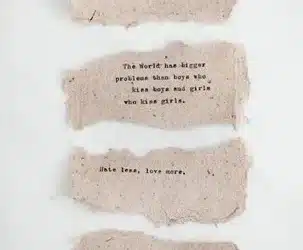 The World has bigger
problems than boys who
kiss boys and girls
who kiss girls.
Hate less, love more.